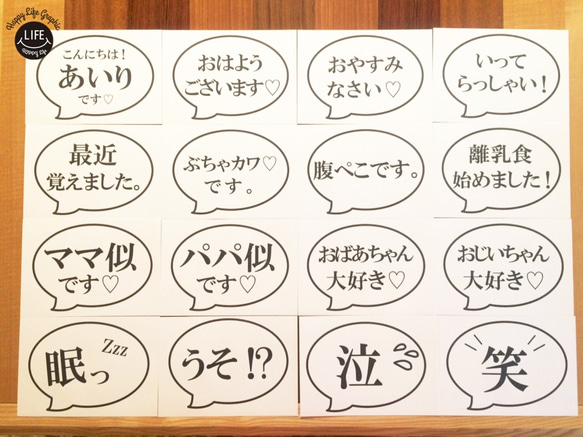 Happy Life Graphic
LIFE
Happy Life
こんにちは!
あいり
です♡
おはよう
ございます♡
おやすみ
なさい♡
いって
らっしゃい!
最近
覚えました。
ぶちゃカワ♡
です。
腹ぺこです。
離乳食
始めました!
ママ似
です♡
パパ似
です♡
おばあちゃん
大好き♡
おじいちゃん
大好き♡
眠っ
Zzz
うそ!?
泣
笑